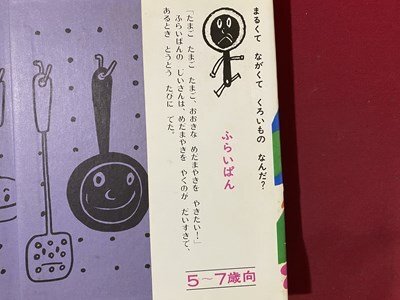 まるくて ながくて くろいもの なんだ?
ふらいぱん
「たまご たまご たまご、おおきな めだまやきを やきたい!」
ふらいぱんの じいさんは、めだまやきを やくのが だいすきで、
あるとき とうとう たびに でた。
5〜7歳向